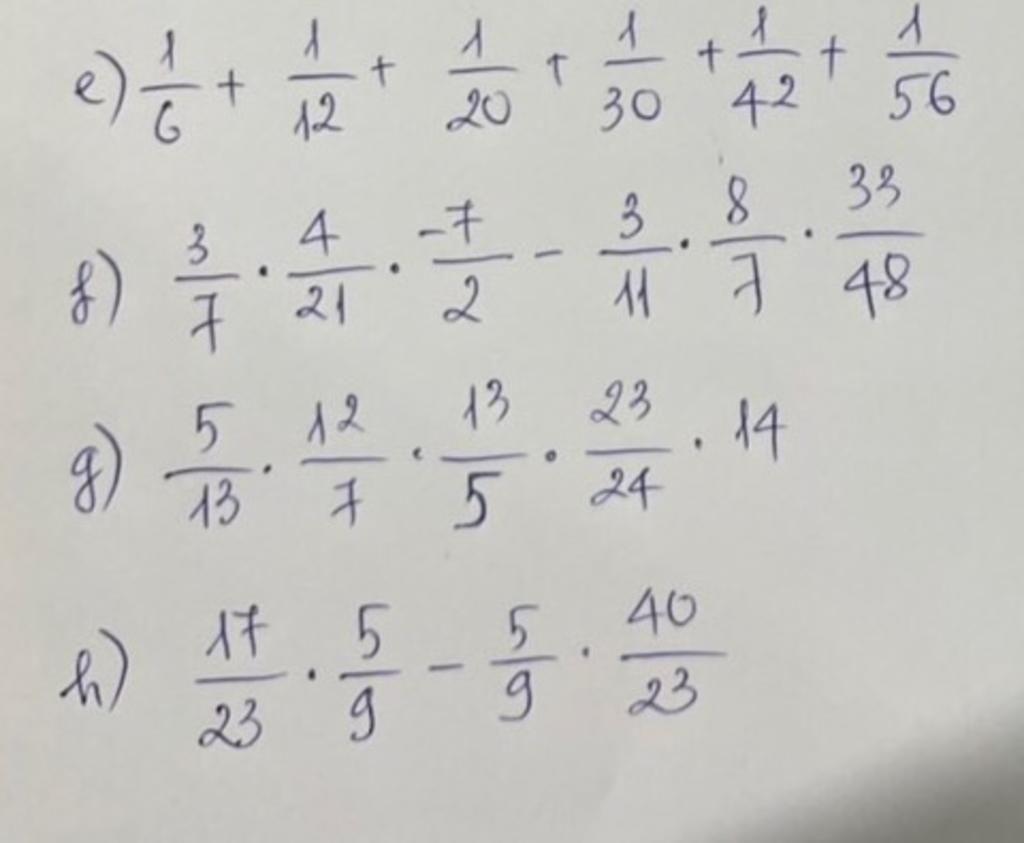 e) 1/6 + 1/12 + 1/20 + 1/30 + 1/42 + 1/56
f) 3/7 · 4/21 · -7/2 - 3/11 · 8/7 · 33/48
g) 5/13 · 12/7 · 13/5 · 23/24 · 14
h) 17/23 · 5/9 - 5/9 · 40/23